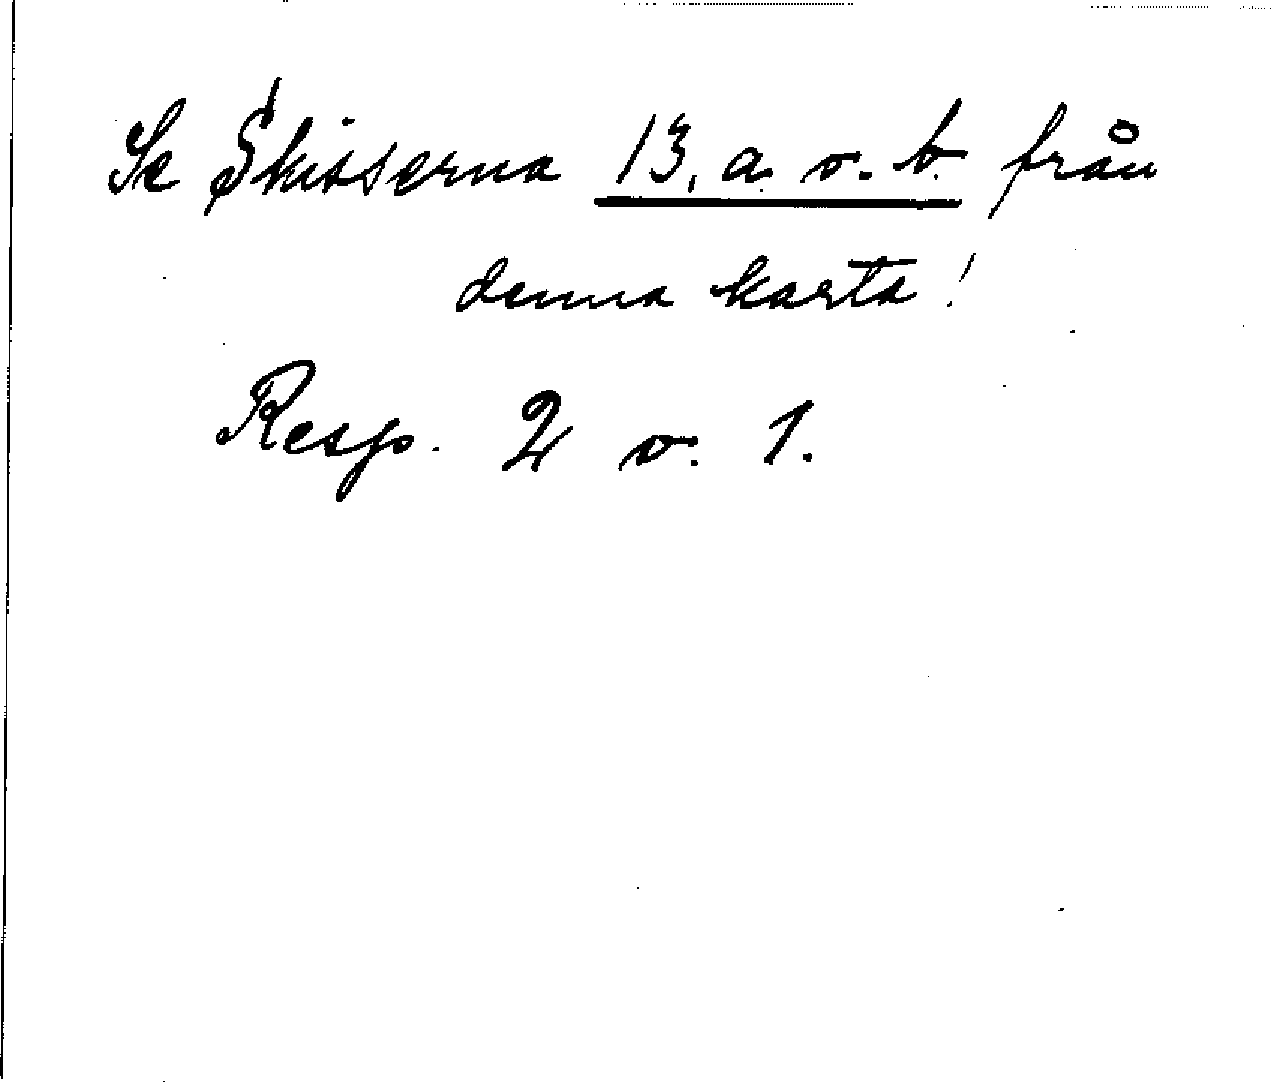 Se Skisserna 13, a. o. b. från
denna karta!
Resp. 2 o. 1.